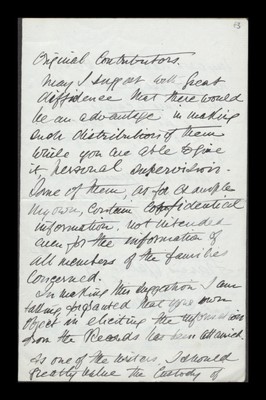 13
Original Contributors.
May I suggest with great
diffidence that there would
be an advantage in making
such distribution of them
while you are able to give
it personal supervision.
Some of them, as for example
my own, contain confidential
information, not intended
even for the information of
all members of the families
concerned.
In making this suggestion I am
taking for granted that your own
object in eliciting the information
from the Records has been achieved.
As one of the writers, I should
greatly value the custody of